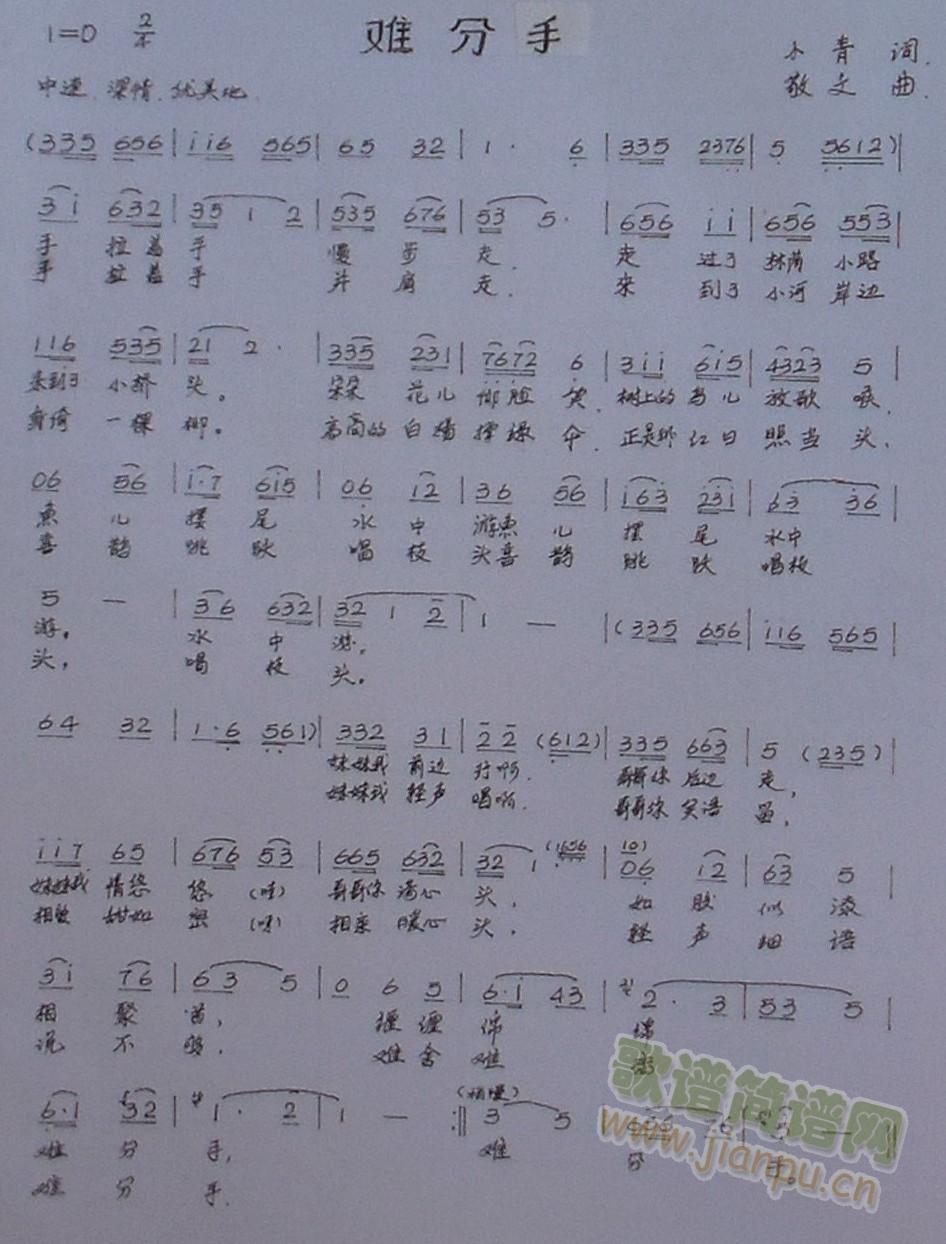 难分手
1=D 2/4
小青 词.
中速 深情.优美地.
敬文 曲.
(335 656 | i i 6 565 | 65 32 | 1· 6 | 335 2376 | 5 5612) |
3 i 632 | 35 1 2 | 535 676 | 53 5· | 656 i i | 656 553 |
手拉着手 慢步走. 走过了林荫小路
手拉着手 并肩走. 来到了小河岸边
116 535 | 21 2· | 335 231 | 7672 6 | 3 i i 6 i 5 | 4323 5 |
来到了小桥头。 朵朵花儿 脸笑. 树上的鸟儿放歌喉.
身倚一棵柳。 高高的白 撑 伞. 正是 红日照当头.
06 56 | i·7 6i5 | 06 12 | 36 56 | i63 23i | 63 36 |
鱼儿摆尾 水中游鱼儿摆尾水中
喜鹊跳跃 唱枝头喜鹊跳跃唱枝
5 — | 36 632 | 32 1 2 | 1 — | (335 656 | i i 6 565 |
游。 水中游.
头, 唱枝头。
64 32 | 1·6 561) | 332 31 | 2 2 (612) | 335 663 | 5 (235) |
妹妹我前边行啊. 哥哥你后边走,
妹妹我轻声唱啊. 哥哥你笑语
i i 7 65 | 676 53 | 665 632 | 32 1· (1656 | 10) 06 12 | 63 5 |
妹妹我情悠悠(哇) 哥哥你 心头, 如胶似漆
相 甜如蜜(呀) 相亲暖心头, 轻声细语
3 i 76 | 63 5 | 0 6 5 | 6·i 43 | 2· 3 | 53 5 |
相聚首, 缠缠绵绵
说不够. 难舍难
6·1 32 | 1· 2 | 1 — :‖ (稍慢) 3 5
难分手, 难分手。
难分手.
歌谱简谱网
www.jianpu.cn